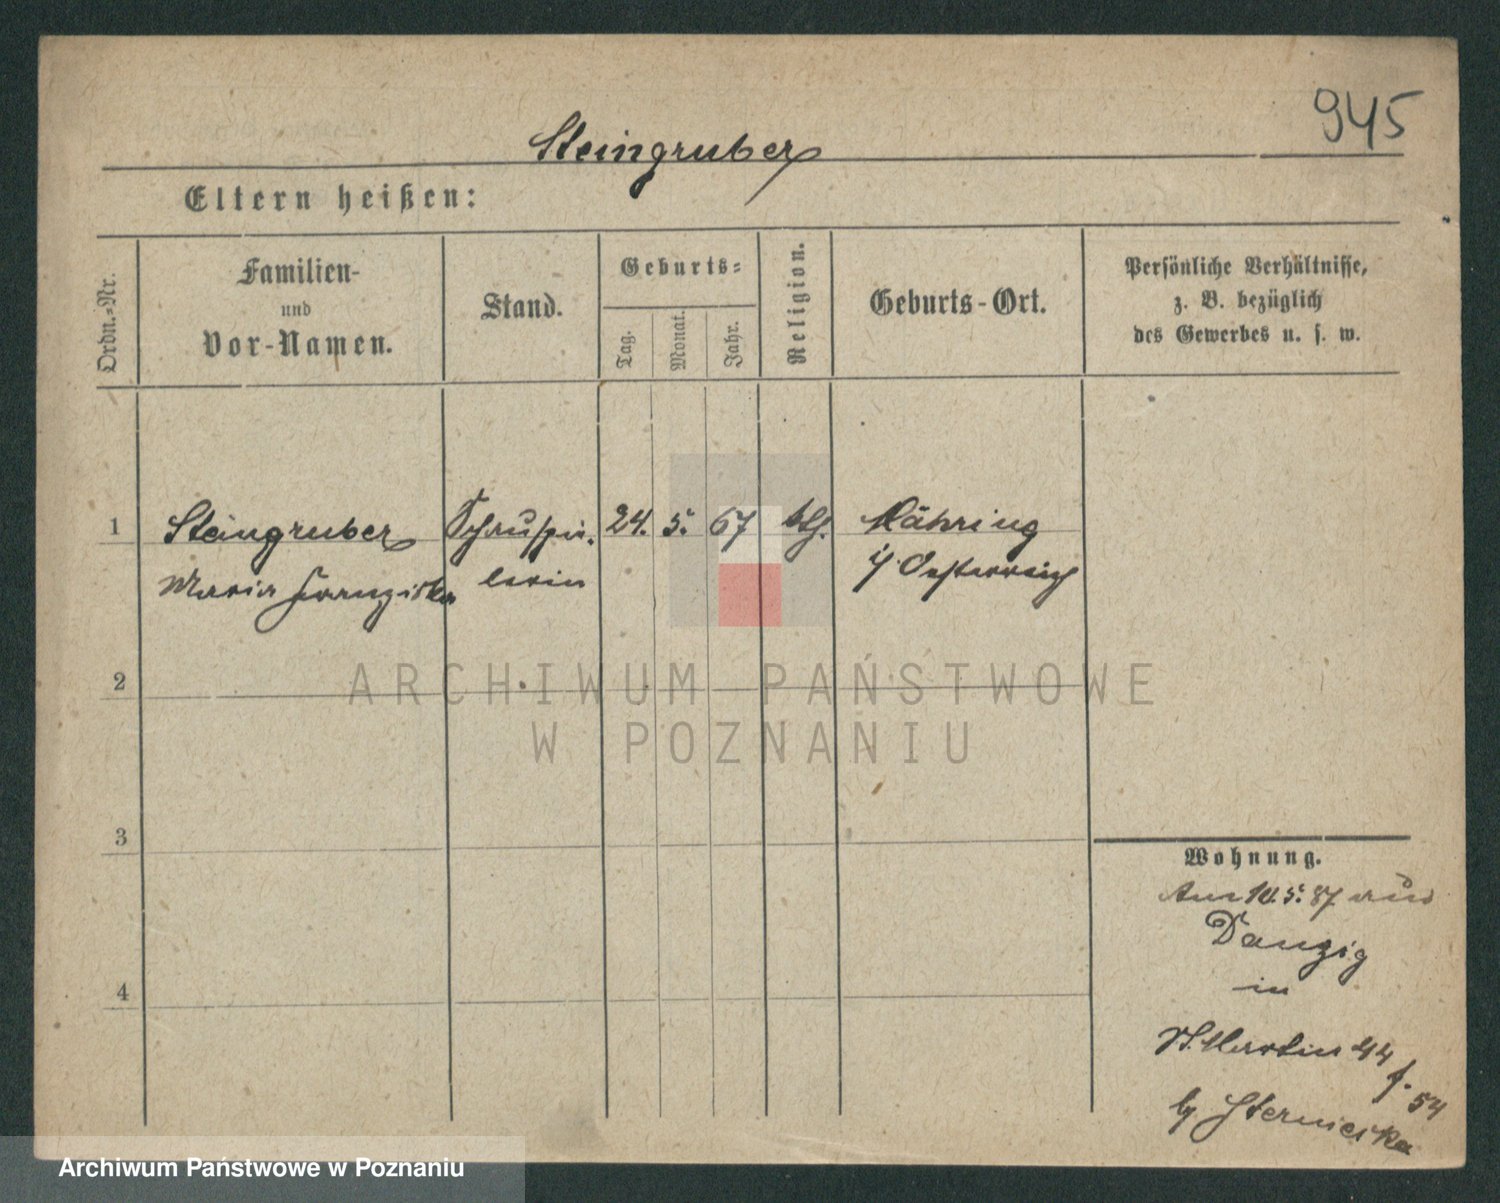 945
Steingruber
Eltern heißen:
Ordn.-Nr.
Familien-
und
Vor-Namen.
Stand.
Geburts-
Tag.
Monat.
Jahr.
Religion.
Geburts-Ort.
Persönliche Verhältnisse,
z. B. bezüglich
des Gewerbes u. s. w.
1
Steingruber
Maria Franziska
Schauspie-
lerin
24.
5.
67
kth.
Mähring
i/ Oesterreich
2
ARCHIWUM PAŃSTWOWE
W POZNANIU
3
4
Wohnung.
Am 10.5.87 aus
Danzig
in
St. Martin 44
f. 54
by
Archiwum Państwowe w Poznaniu